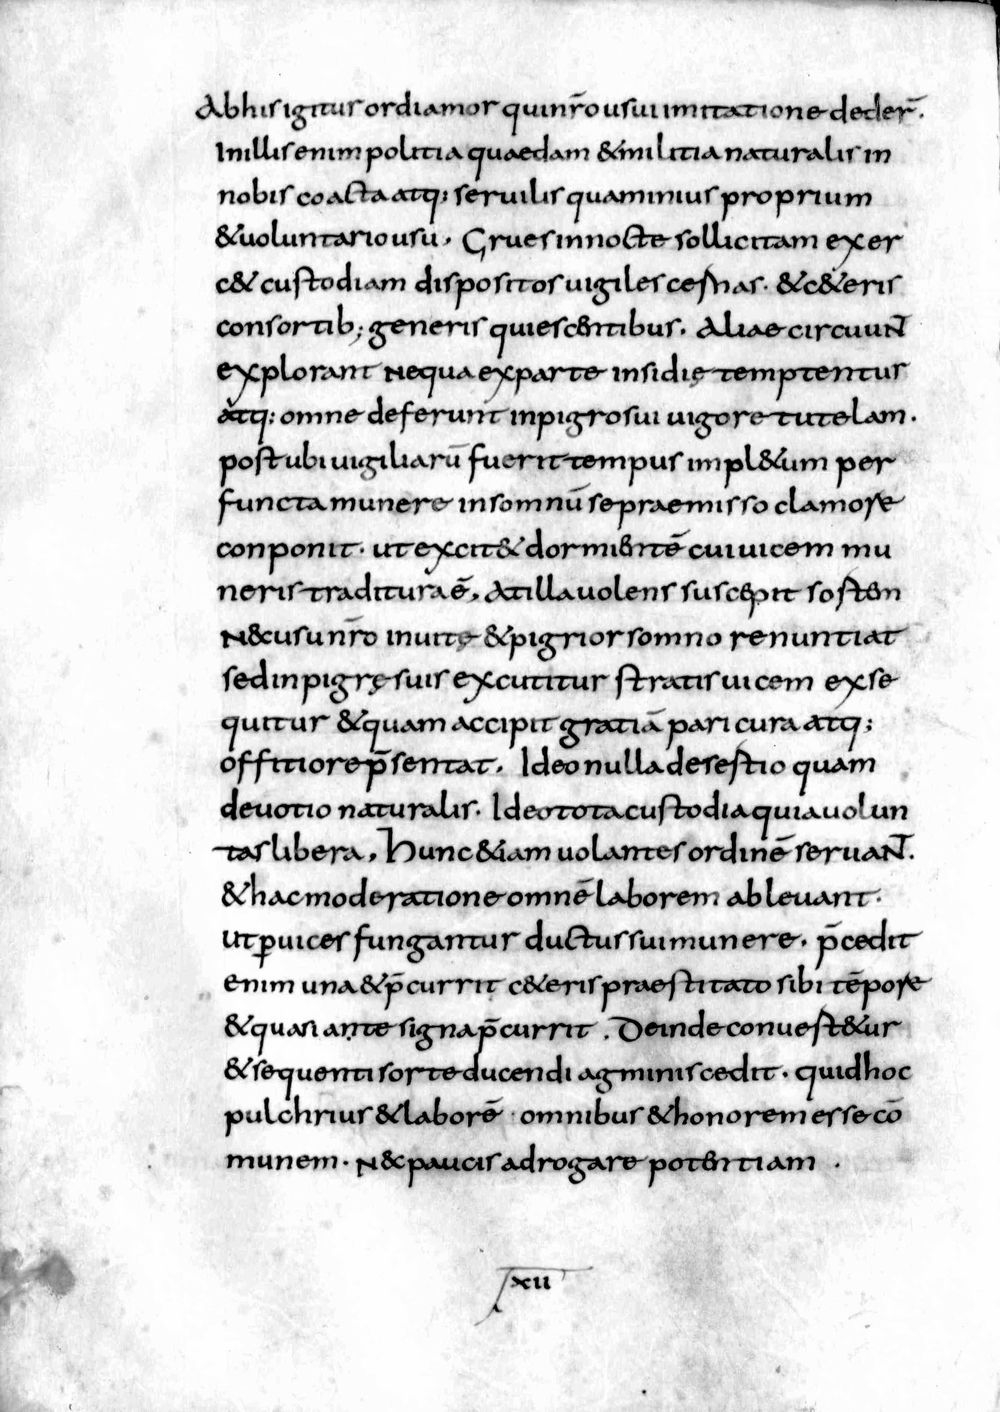 Abhis igitur ordiamor qui nr̄o usui imitatione deder̄.
In illis enim politia quaedam & militia naturalis in
nobis coacta atq; seruilis quam inius proprium
& uoluntario usu, Grues in nocte sollicitam exer
c& custodiam dispositos uigiles cernas. & c&eris
consortib; generis quiescentibus. Aliae circuuNT
explorant nequa ex parte insidię temptentur
atq; omne deferunt inpigro sui uigore tutelam.
post ubi uigiliarū fuerit tempus impl&um per
functa munere in somnū se praemisso clamore
conponit. ut excit& dormientē cui uicem mu
neris traditura ē, At illa uolens suscepit sorten
N&c usu nr̄o inuitę & pigrior somno renuntiat
sed inpigrę suis excutitur stratis uicem exse
quitur & quam accipit gratiā pari cura atq;
offitio rep̄sentat. Ideo nulla desertio quam
deuotio naturalis. Ideo tota custodia quia uolun
tas libera, Hunc &iam uolantes ordinē seruaNT.
& hac moderatione omnē laborem ableuant.
ut ꝑ uices fungantur ductus sui munere. p̄cedit
enim una & p̄currit c&eris praestitato sibi tēpore
& quasi ante signa p̄currit. Deinde conuert&ur
& sequenti sorte ducendi agminis cedit. quid hoc
pulchrius & laborē omnibus & honorem esse cō
munem. N&c paucis adrogare potentiam .
xii